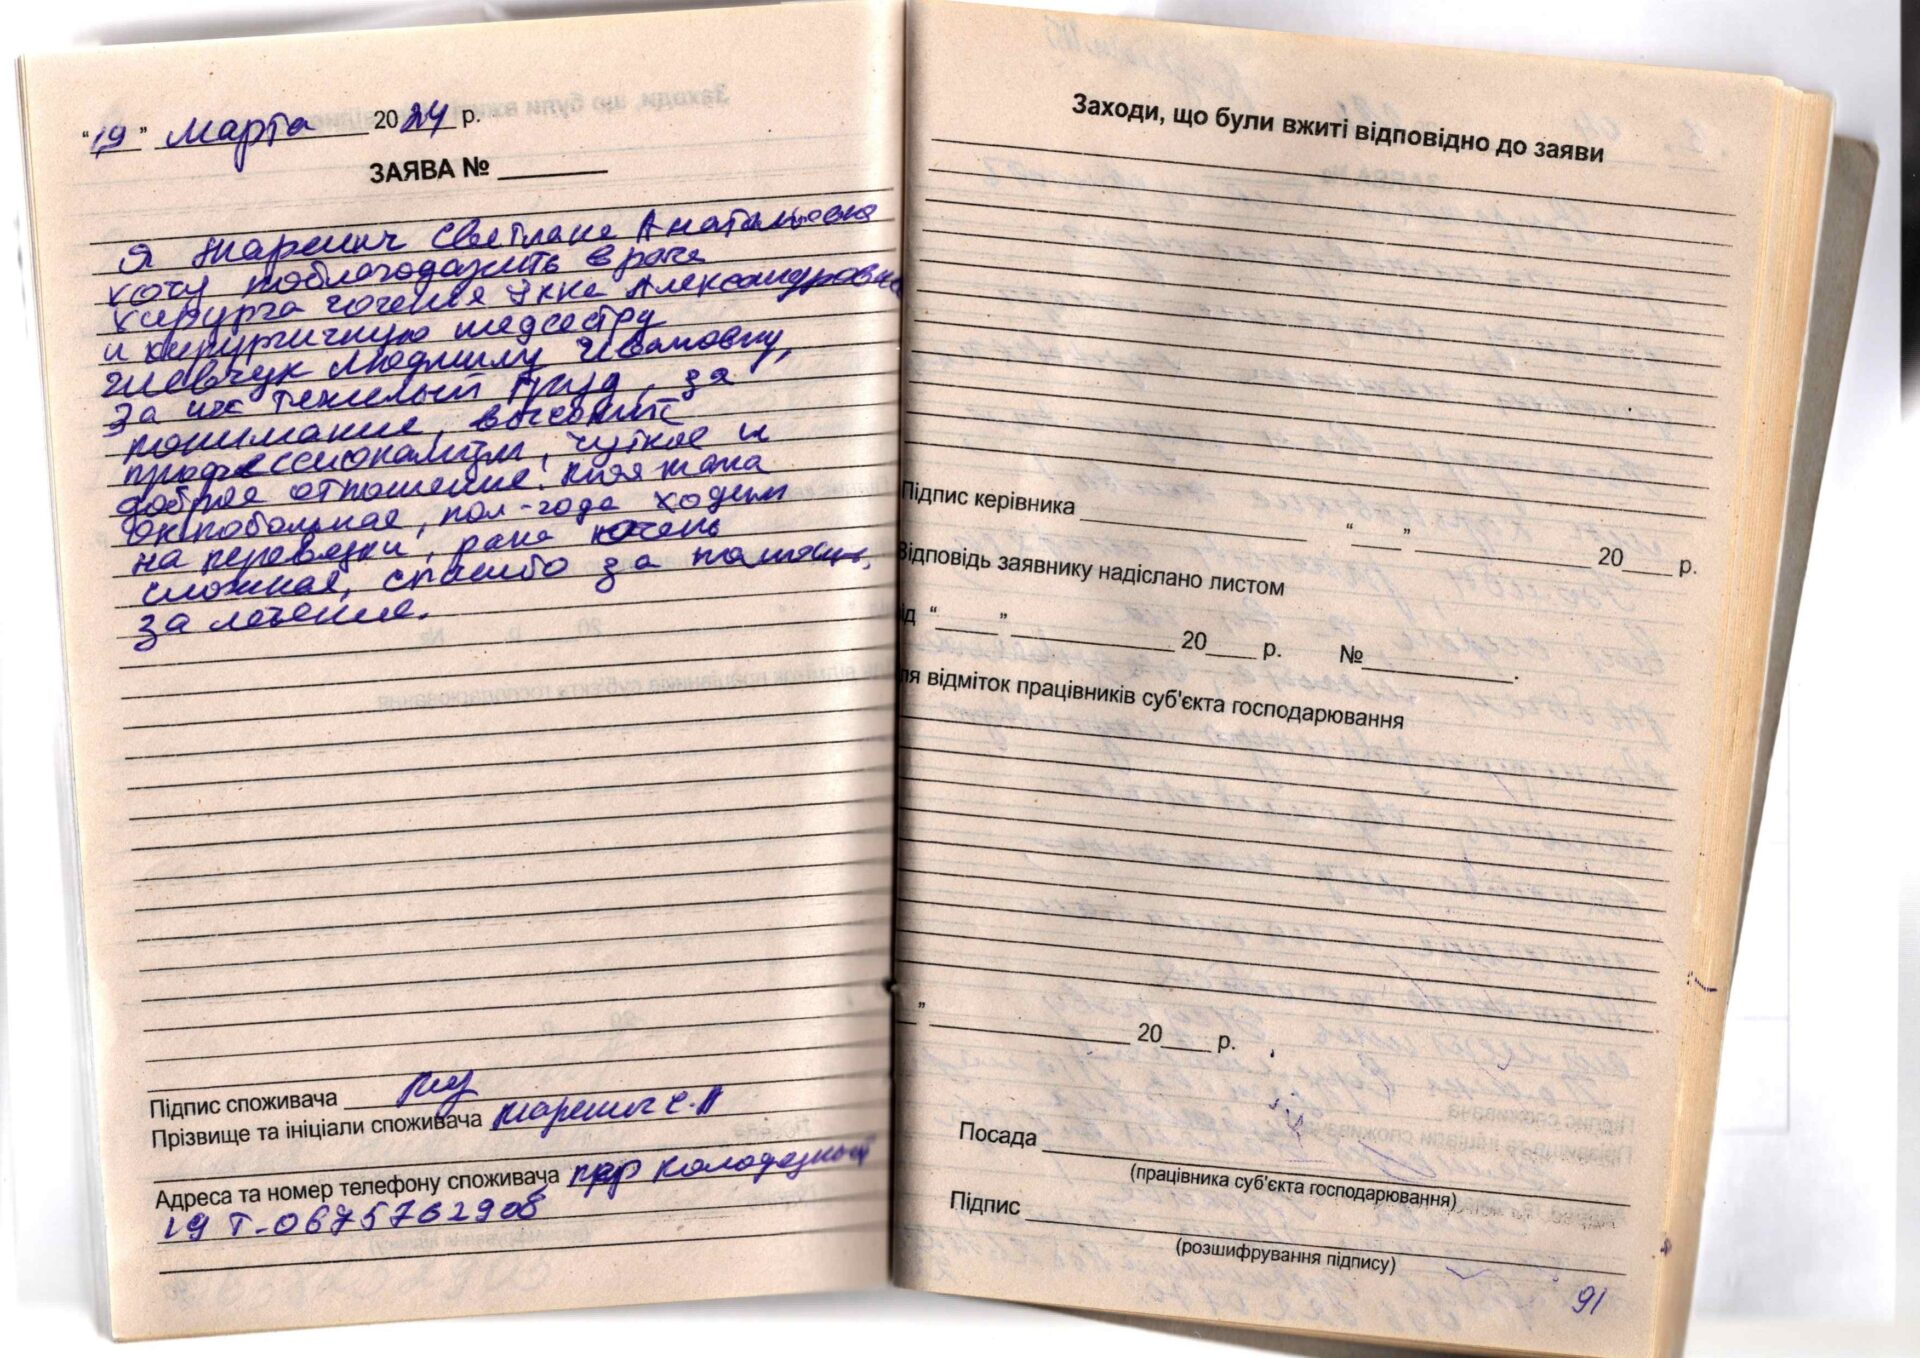 "19" марта 2024 р.
ЗАЯВА №
Я Светлана Анатольевна
хочу поблагодарить врача
хирурга Инна Александровна
и хирургичную медсестру
Шевчук Людмилу Ивановну,
за их тяжелый труд, за
понимание, высокий
профессионализм, чуткое и
доброе отношение! Моя мама
онкобольная, пол-года ходим
на перевязки, рана очень
сложная, спасибо за помощь,
за лечение.
Підпис споживача
Прізвище та ініціали споживача С.А
Адреса та номер телефону споживача пер Колодезный
19 Т-0675762908
Заходи, що були вжиті відповідно до заяви
Підпис керівника " " 20 р.
Відповідь заявнику надіслано листом
від " " 20 р. №
для відміток працівників суб'єкта господарювання
" 20 р.
Посада
(працівника суб'єкта господарювання)
Підпис
(розшифрування підпису)
91